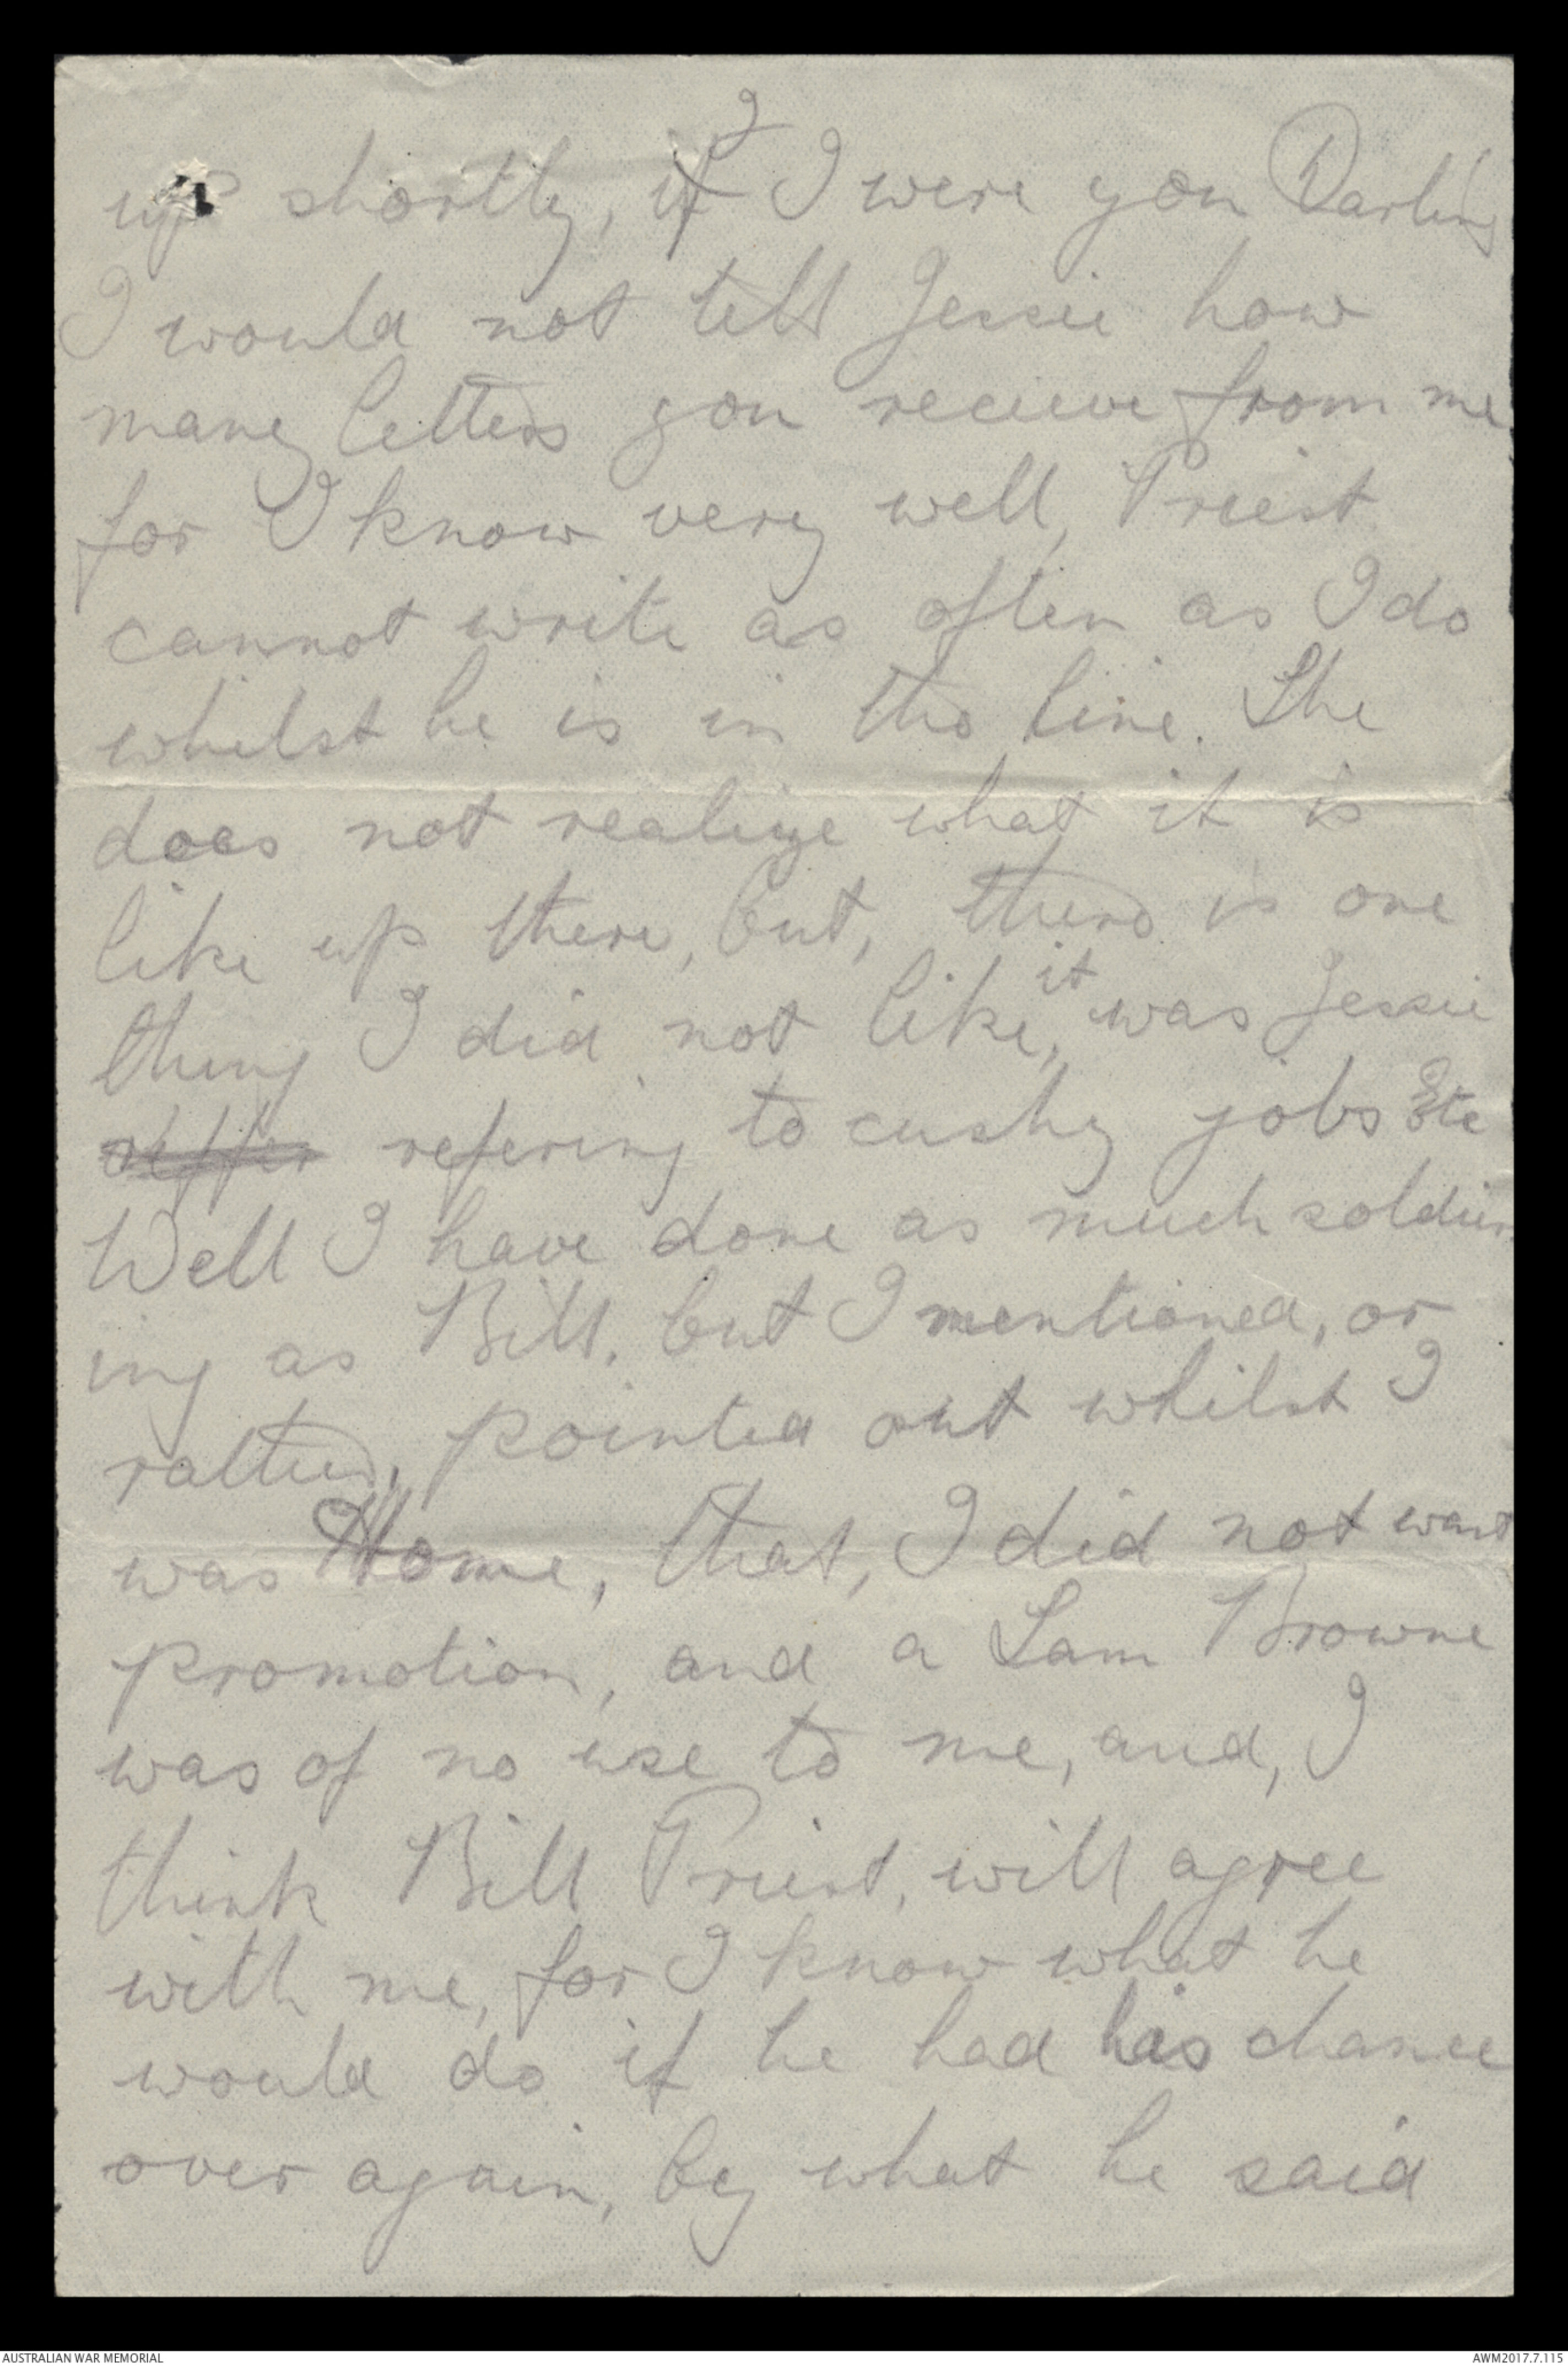 2
up shortly, if I were you Darling
I would not tell Jessie how
many letters you recieve from me
for I know very well, Priest
cannot write as often as I do
whilst he is in the line. She
does not realize what it is
like up there, but, there is one
thing I did not like, it was Jessie
reffer refering to cushy jobs Etc
Well I have done as much soldier
ing as Bill, but I mentioned, or
rather, pointed out whilst I
was Home, that, I did not want
promotion, and a Sam Browne
was of no use to me, and, I
think Bill Priest, will agree
with me, for I know what he
would do if he had his chance
over again, by what he said
AUSTRALIAN WAR MEMORIAL
AWM2017.7.115